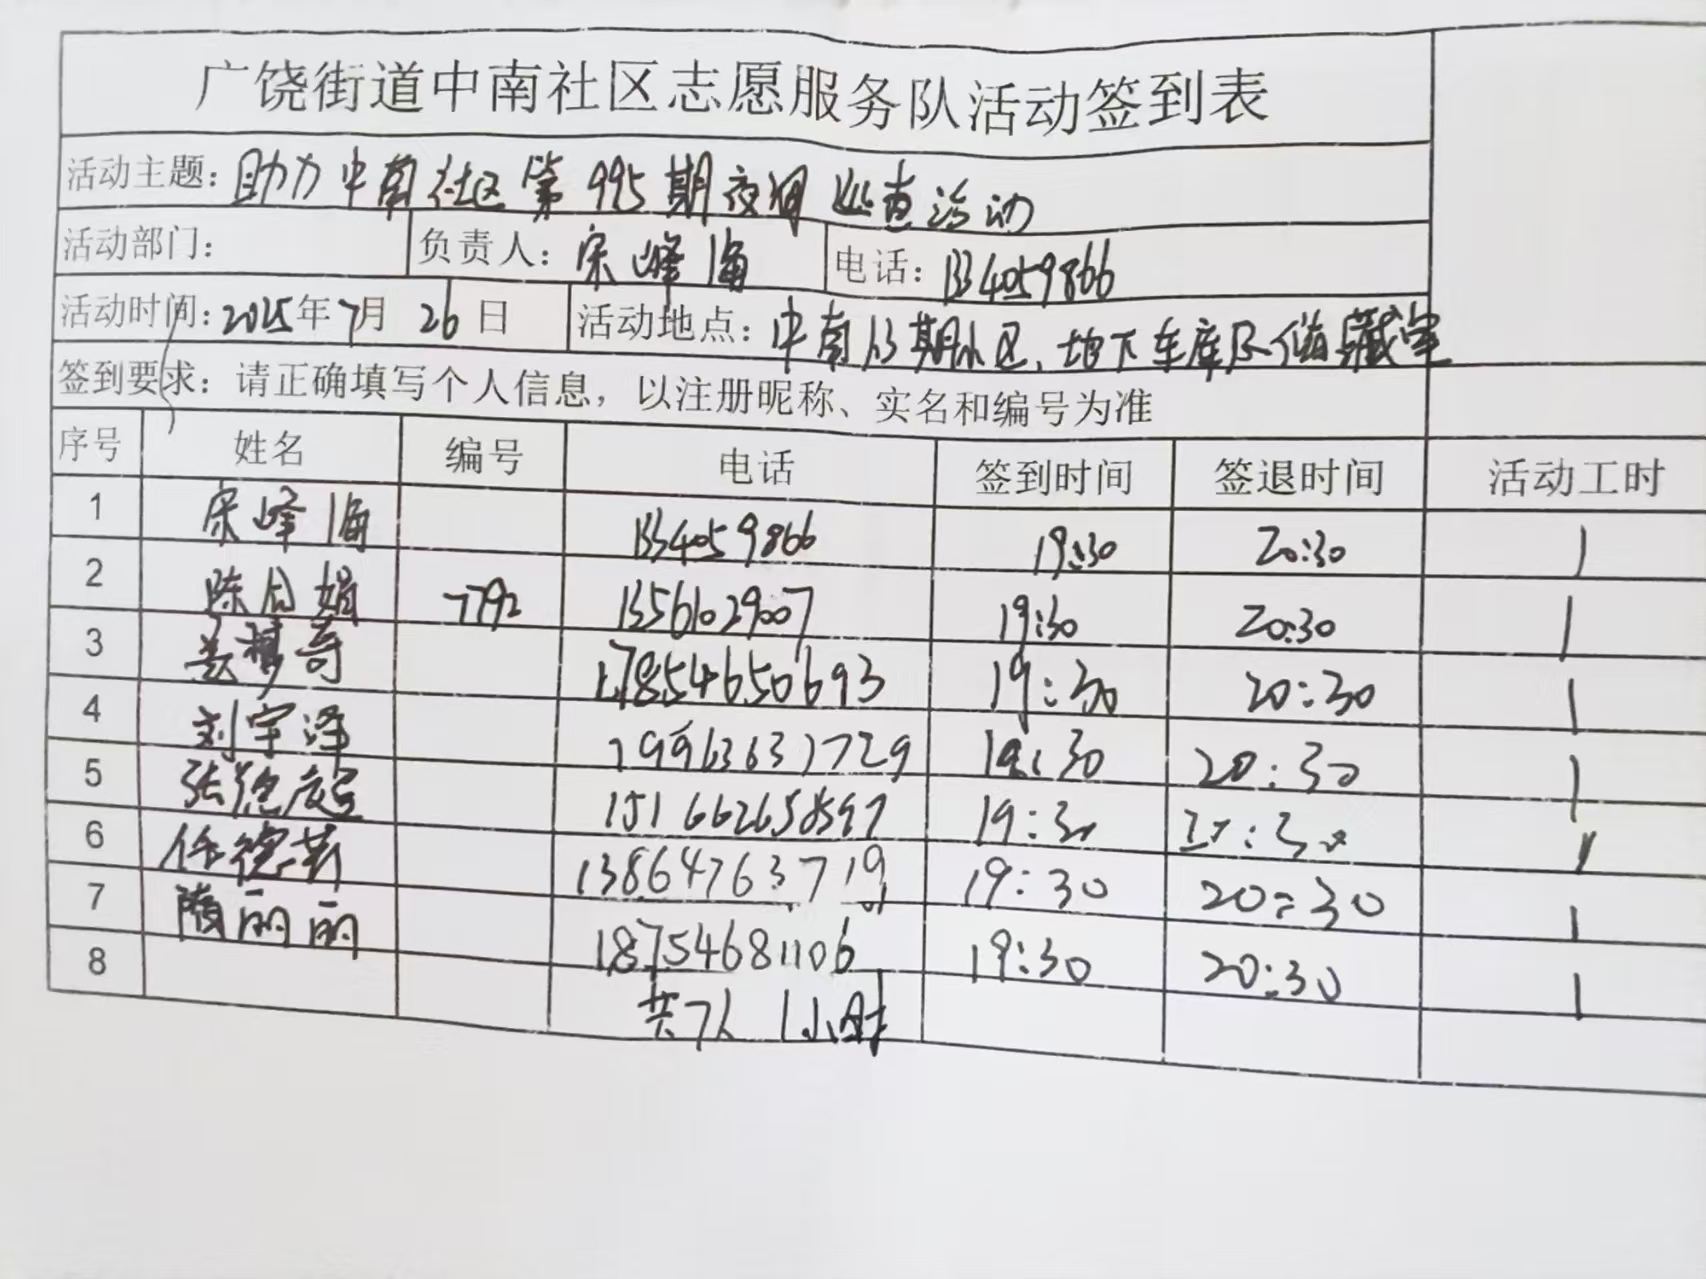 广饶街道中南社区志愿服务队活动签到表
活动主题：助力中南社区第995期夜间巡查活动
活动部门： 负责人：宋峰海 电话：1334059866
活动时间：2025年7月26日 活动地点：中南1.3期小区、地下车库及储藏室
签到要求：请正确填写个人信息，以注册昵称、实名和编号为准
序号 姓名 编号 电话 签到时间 签退时间 活动工时
1 宋峰海 1334059866 19:30 20:30 1
2 陈月娟 7792 13561029007 19:30 20:30 1
3 17854650693 19:30 20:30 1
4 刘宇泽 19963631729 19:30 20:30 1
5 张 19:30 20:30 1
6 任德 13864763719 19:30 20:30 1
7 隋丽丽 18754681106 19:30 20:30 1
8 共7人 1小时